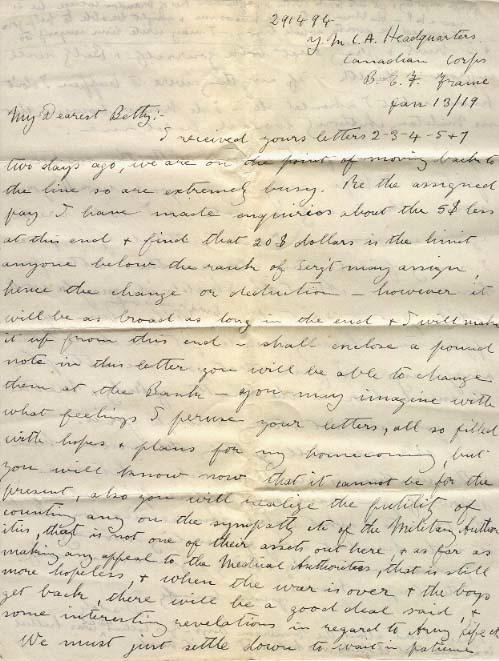 291494
Y.M.C.A. Headquarters
Canadian Corps
B.E.F. France
Jan 13/19
My Dearest Betty:-
I received yours letters 2-3-4-5+7
two days ago, we are on the point of moving back to
the line so are extremely busy. Re the assigned
pay I have made enquiries about the 5$ less
at this end + find that 20$ dollars is the limit
anyone below the rank of Sergt may assign,
hence the change or deduction - however it
will be as broad as long in the end + I will make
it up from this end - shall enclose a pound
note in this letter you will be able to change
them at the Bank - you may imagine with
what feelings I peruse your letters, all so filled
with hopes + plans for my homecoming, but
you will know now that it cannot be for the
present, also you will realize the futilit of
counting any on the sympath etc of the Military Author
ities, that is not one of their assets out here, + as far as
making any appeal to the Medical Authorities, that is still
more hopeless, + when the war is over + the boys
get back, there will be a good deal said, +
some interesting revelations in regard to Army
We must just settle down to wait in patience